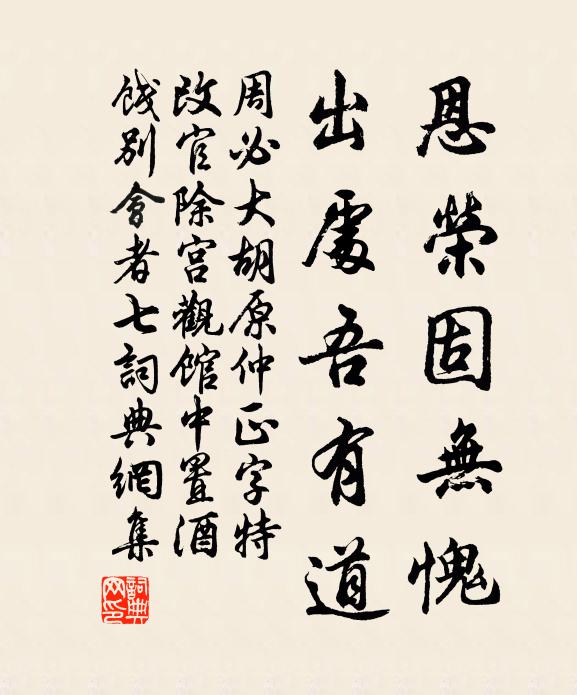 恩榮固無愧
出處吾有道
周必大胡原仲正字特
改官除宮觀館中置酒
餞別會者七詞典網集
詞典網印